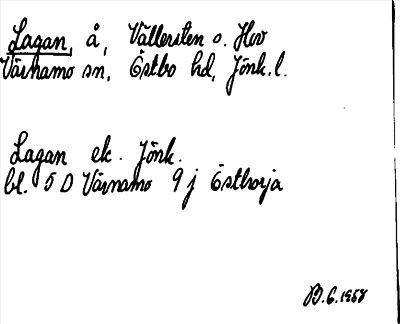 Lagan, å, Vällersten o. Hov
Värnamo sn, Östbo hd, Jönk.l.
Lagan ek. Jönk.
bl. 5 D Värnamo 9 j Östhorja
B.G. 1958